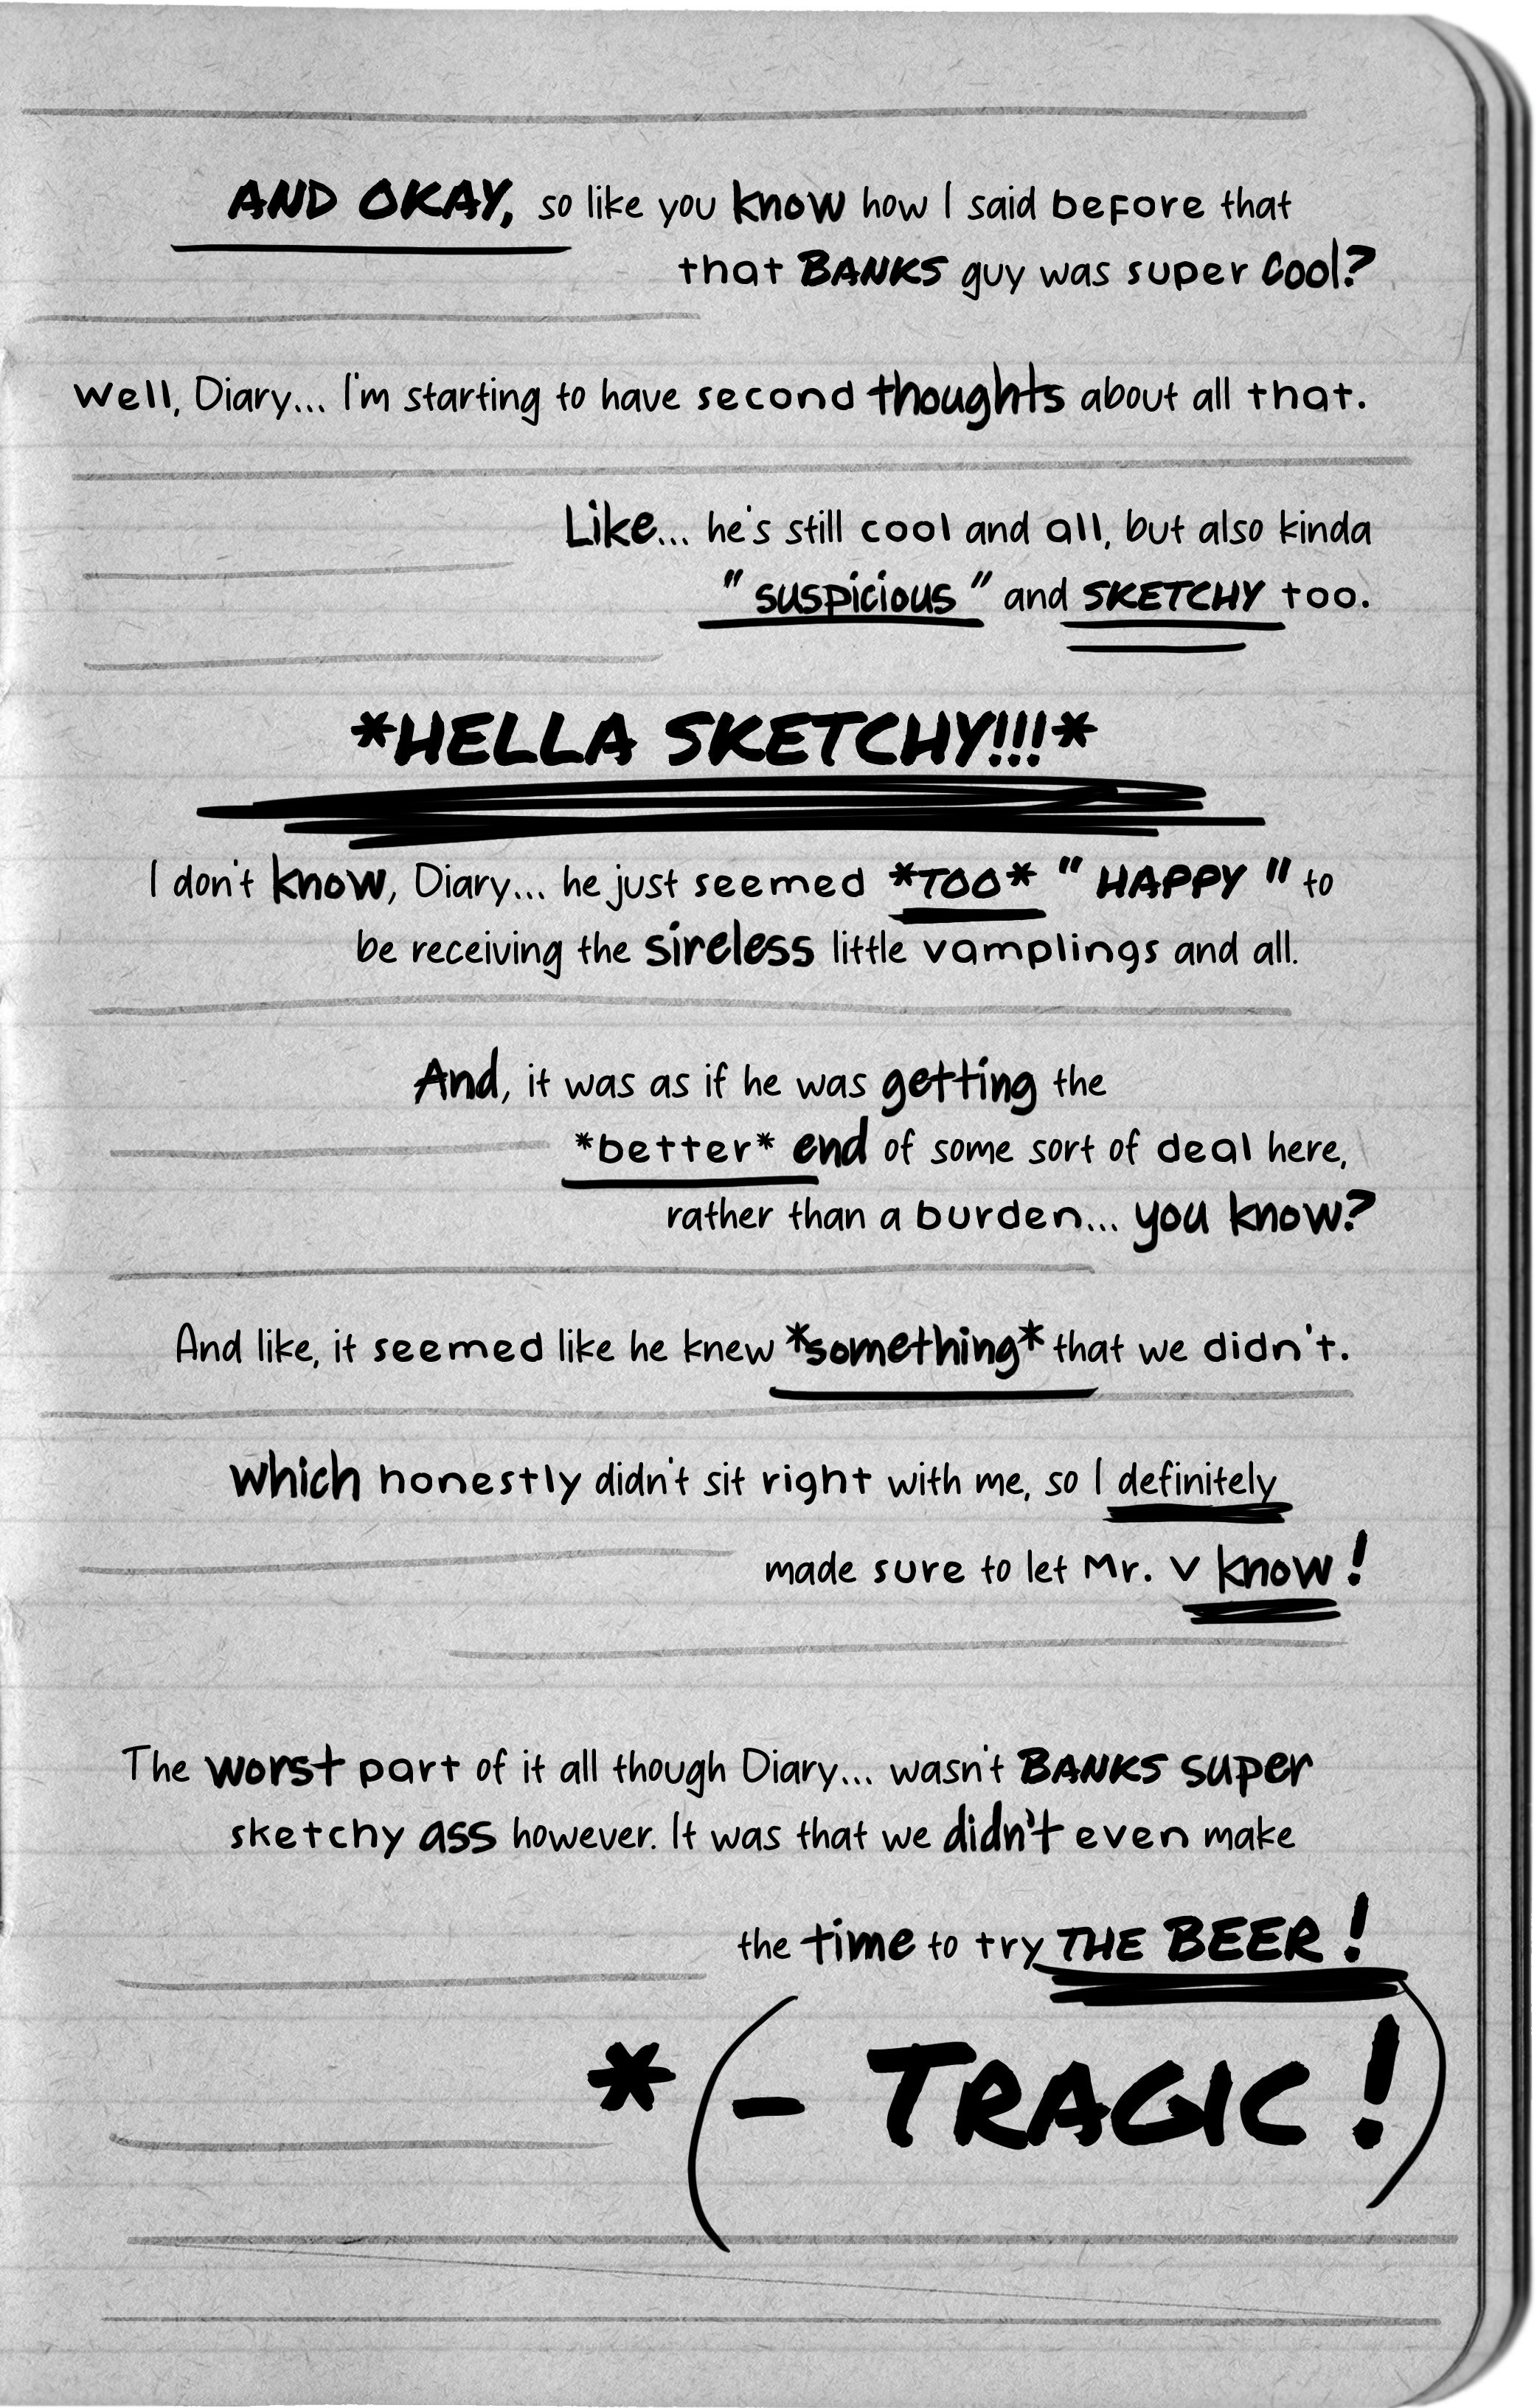 AND OKAY, so like you know how I said before that
that BANKS guy was super cool?
Well, Diary... I'm starting to have second thoughts about all that.
Like... he's still cool and all, but also kinda
"suspicious" and SKETCHY too.
*HELLA SKETCHY!!!*
I don't know, Diary... he just seemed *TOO* "HAPPY" to
be receiving the sireless little vamplings and all.
And, it was as if he was getting the
*better* end of some sort of deal here,
rather than a burden... you know?
And like, it seemed like he knew *something* that we didn't.
Which honestly didn't sit right with me, so I definitely
made sure to let Mr. V know!
The worst part of it all though Diary... wasn't BANKS super
sketchy ass however. It was that we didn't even make
the time to try THE BEER!
*(- TRAGIC!)